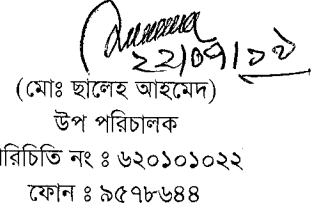 ২২/০৭/১৯
(মোঃ ছালেহ আহমেদ)
উপ পরিচালক
রিচিতি নং ঃ ৬২০১০১০২২
ফোন ঃ ৯৫৭৮৬৪৪